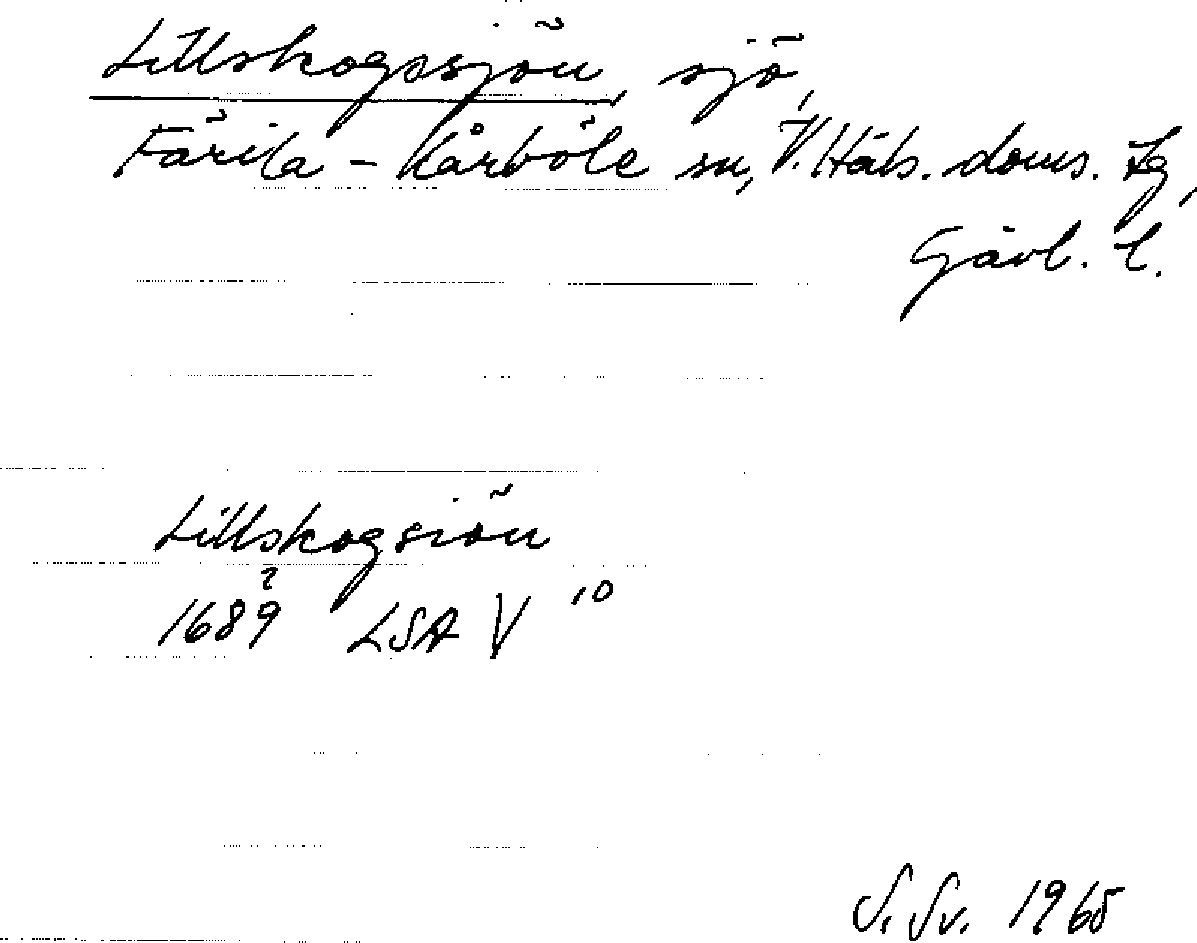 Lillskogssjön, sjö,
Färila - Kårböle sn, V. Häls. doms. lg,
Gävl. l.
Lillskogsiön
?
1689 LSA V 10
S. Sv. 1965